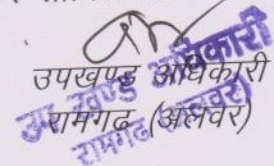 उपखण्ड अधिकारी
रामगढ (अलवर)
उप खण्ड अधिकारी
रामगढ (अलवर)